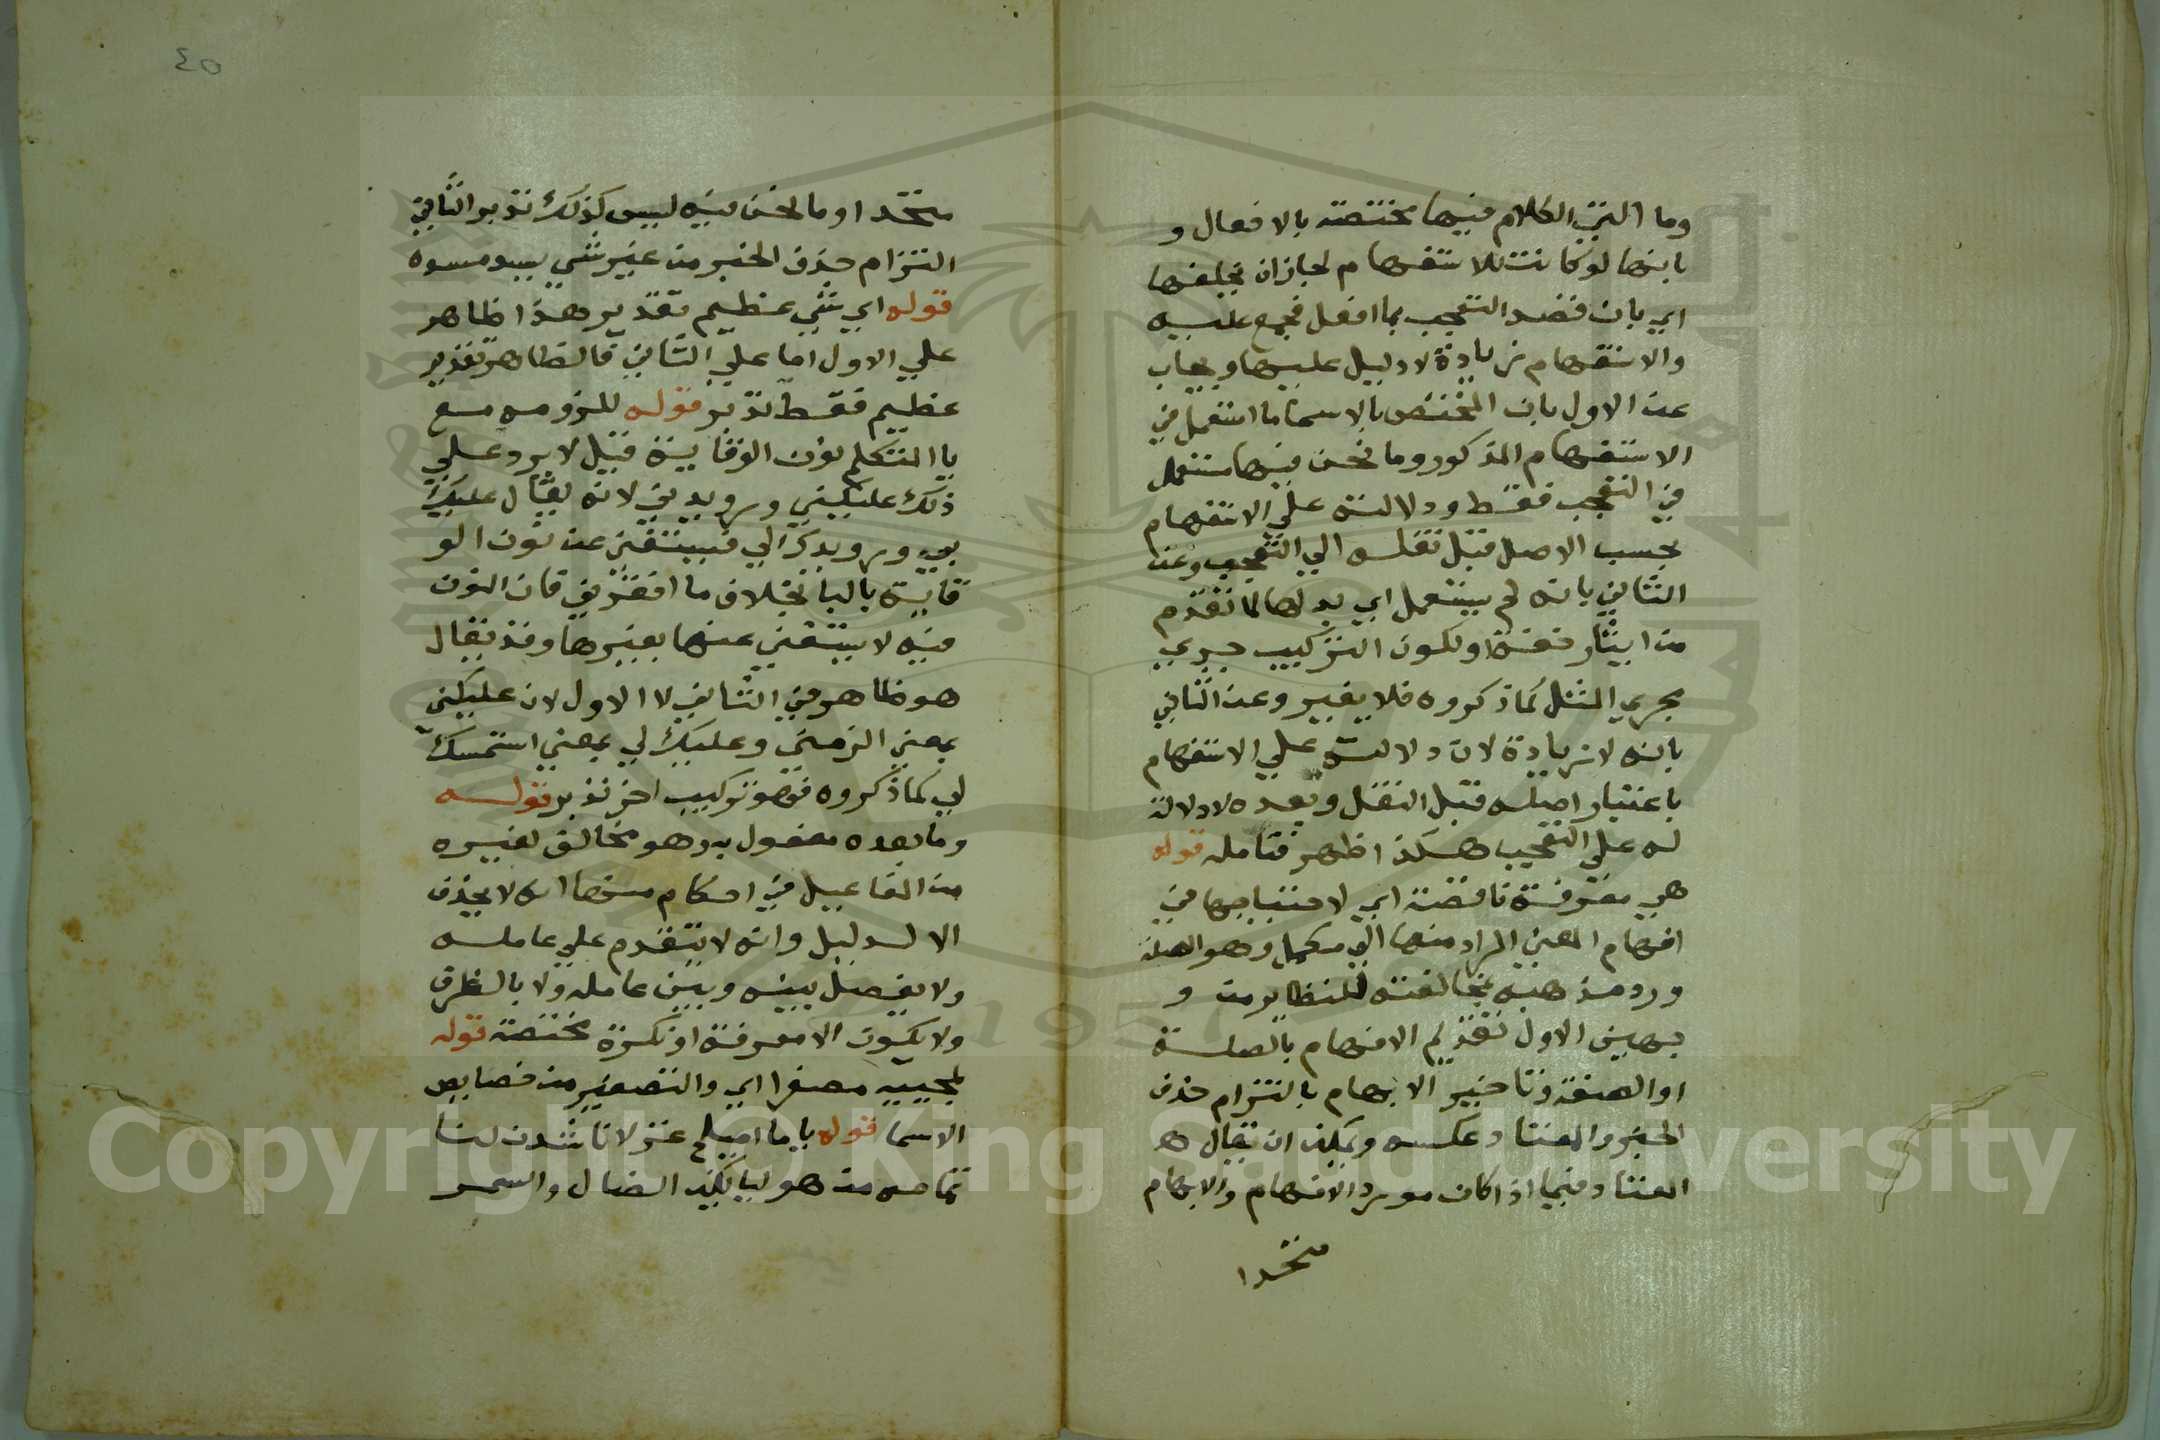 وما التي الكلام فيها مختصة بالافعال و
بانها لو كانت للاستفهام لجاز ان يخلفها
اي بان قصد التعجب بما افعل مجمع عليه
والاستفهام زيادة لا دليل عليها ويجاب
عن الاول بان المختص بالاسما ما استعمل في
الاستفهام المذكور وما نحن فيها مستعمل
في التعجب فقط ودلالته علي الاستفهام
بحسب الاصل قبل نقله الي التعجب وعن
الثاني بانه لم يستعمل اي بدلها لما تقدم
من ايثار خفته او لكون التركيب جري
مجري المثل كما ذكروه فلا يغير وعن الثاني
بانه لا زيادة لان دلالته علي الاستفهام
باعتبار اصله قبل النقل وبعده لا دلالة
له علي التعجب هكذا ظهر فتامله قوله
هي معرفة ناقصة اي لاحتياجها في
افهام المعني المراد منها الي مكمل وهو الصلة
ورد مذهبه بمخالفته للنظاير من و
جهين الاول تقديم الافهام بالصلة
او الصفة وتاخير الابهام بالتزام حذف
الخبر والمعتاد عكسه ويمكن ان يقال هو
المعتاد فيما اذا كان مورد الافهام والابهام
متحدا
٤٥
متحدا وما نحن فيه ليس كذلك تدبر الثاني
التزام حذف الخبر من غير شي يسد مسده
قوله اي شي عظيم تقدير هذا ظاهر
علي الاول اما علي الثاني فالظاهر تقدير
عظيم فقط تدبر قوله للزومه مع
يا المتكلم نون الوقاية قيل لا يرد علي
ذلك عليكني ورويدني لانه يقال عليك
بي ورويدك الي فيستغني عن نون الو
قاية بالبا بخلاف ما افقرني فان النون
فيه لا يستغني عنها بغيرها وقد يقال
هو ظاهر في الثاني لا الاول لان عليكني
بمعني الزمني وعليك لي بمعني استمسك
لي كما ذكروه فهو تركيب اخر تدبر قوله
وما بعده مفعول به وهو مخالف لغيره
من المفاعيل في احكام منها انه لا يحذف
الا لدليل وانه لا يتقدم علي عامله
ولا يفصل بينه وبين عامله ولا بالظرف
ولا يكون الا معرفة او نكرة مختصة قوله
لمجييه مصغرا اي والتصغير من خصايص
الاسما قوله ياما اميلح غزلانا شدن لنا
تمامه من هوليايكن الضال والسمر
Copyright © King Saud University
1957